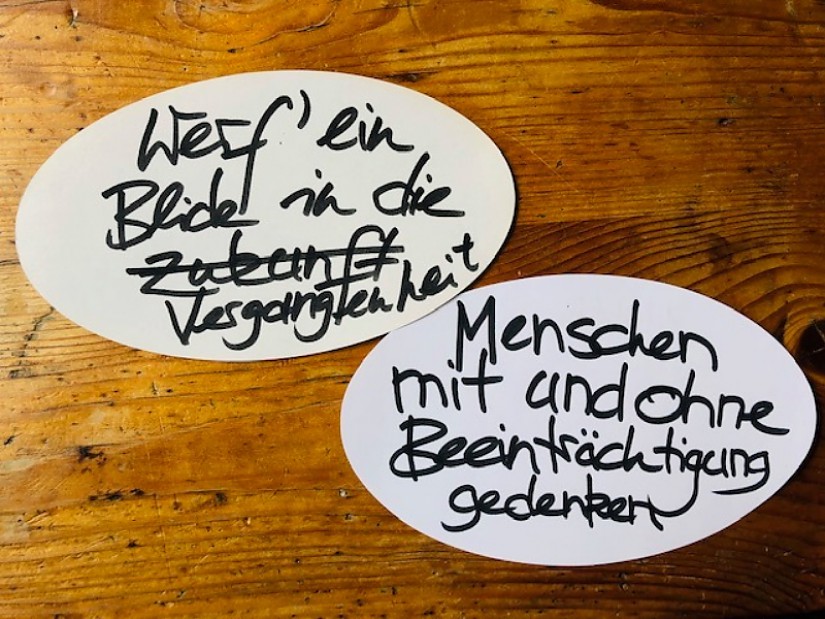 Werf' ein
Blick in die
Zukunft
Vergangenheit
Menschen
mit und ohne
Beeinträchtigung
gedenken